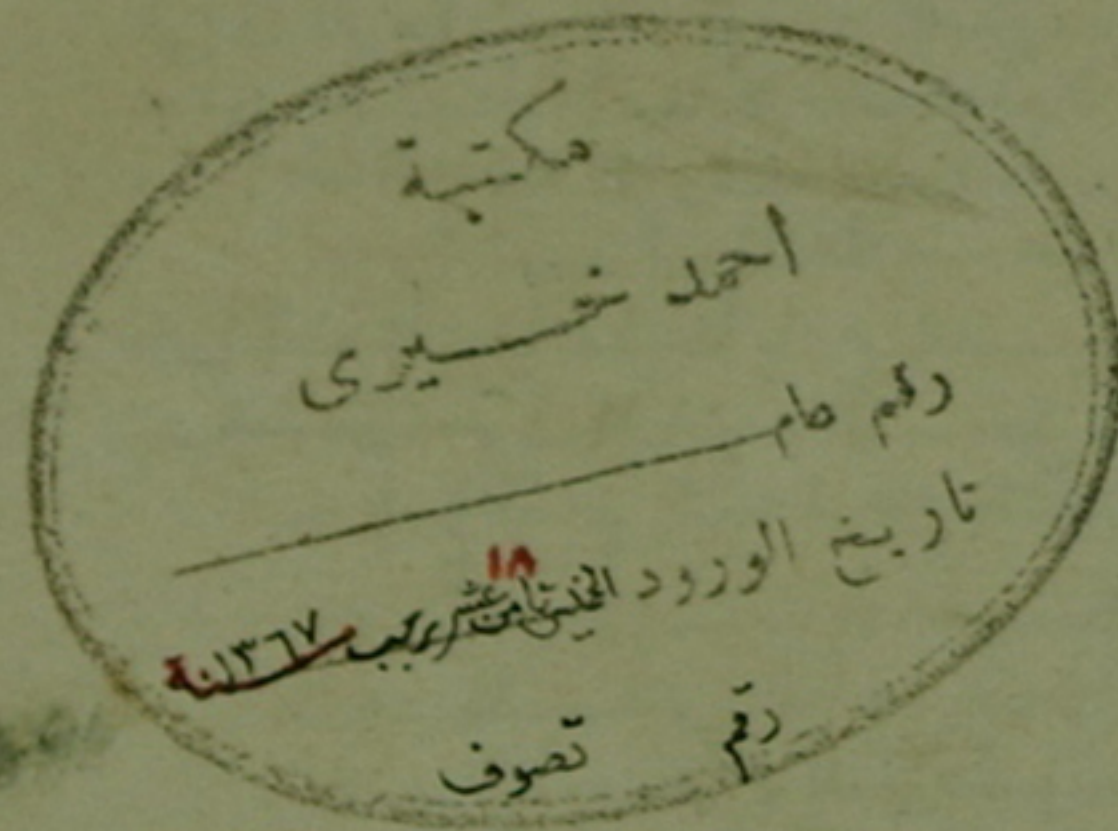 مكتبة
احمد خيرى
رقم عام
تاريخ الورود الخميس ثامن عشر ١٨ رجب سنة ١٣٦٧
رقم تصوف